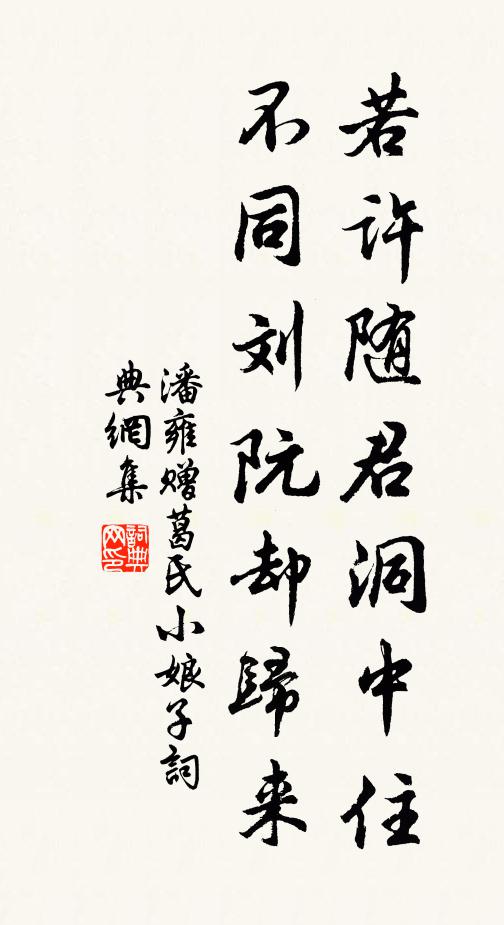 若许随君洞中住
不同刘阮却歸来
潘雍赠葛氏小娘子詞
典網集
詞典
网印